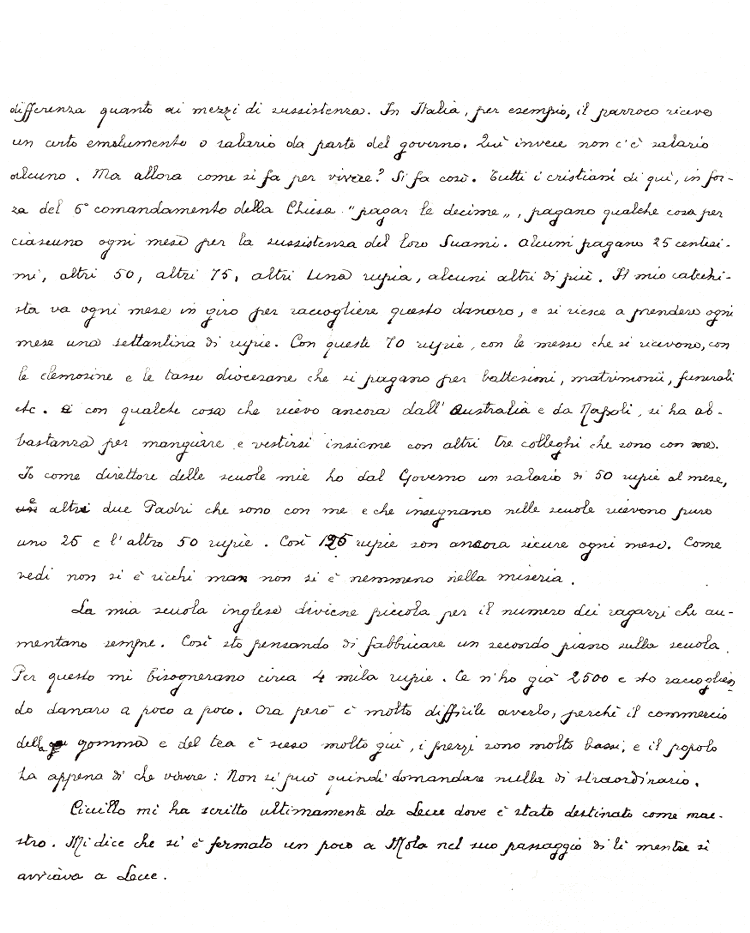 differenza quanto ai mezzi di sussistenza. In Italia, per esempio, il parroco riceve
un certo emolumento o salario da parte del governo. Quì invece non c'è salario
alcuno. Ma allora come si fa per vivere? Si fa così. Tutti i cristiani di quì, in for-
za del 5° comandamento della Chiesa "pagar le decime", pagano qualche cosa per
ciascuno ogni mese per la sussistenza del loro Suami. Alcuni pagano 25 centesi-
mi, altri 50, altri 75, altri una rupia, alcuni altri di più. Il mio catechi-
sta va ogni mese in giro per raccogliere questo danaro, e si riesce a prendere ogni
mese una settantina di rupie. Con queste 70 rupie, con le messe che si ricevono, con
le elemosine e le tasse diocesane che si pagano per battesimi, matrimonii, funerali
etc. e con qualche cosa che ricevo ancora dall'Australia e da Napoli, si ha ab-
bastanza per mangiare e vestirsi insieme con altri tre colleghi che sono con me.
Io come direttore delle scuole mie ho dal Governo un salario di 50 rupie al mese,
e altri due Padri che sono con me e che insegnano nelle scuole ricevono pure
uno 25 e l'altro 50 rupie. Così 125 rupie son ancora sicure ogni mese. Come
vedi non si è ricchi ma non si è nemmeno nella miseria.
La mia scuola inglese diviene piccola per il numero dei ragazzi che au-
mentano sempre. Così sto pensando di fabbricare un secondo piano sulla scuola.
Per questo mi bisognerano circa 4 mila rupie. Ce n'ho già 2500 e sto raccoglien-
do danaro a poco a poco. Ora però è molto difficile averlo, perchè il commercio
della gomma e del tea è sceso molto giù, i prezzi sono molto bassi, e il popolo
ha appena di che vivere: Non si può quindi domandare nulla di straordinario.
Cirillo mi ha scritto ultimamente da Lecce dove è stato destinato come mae-
stro. Mi dice che si è fermato un poco a Mola nel suo passaggio di lì mentre si
avviava a Lecce.